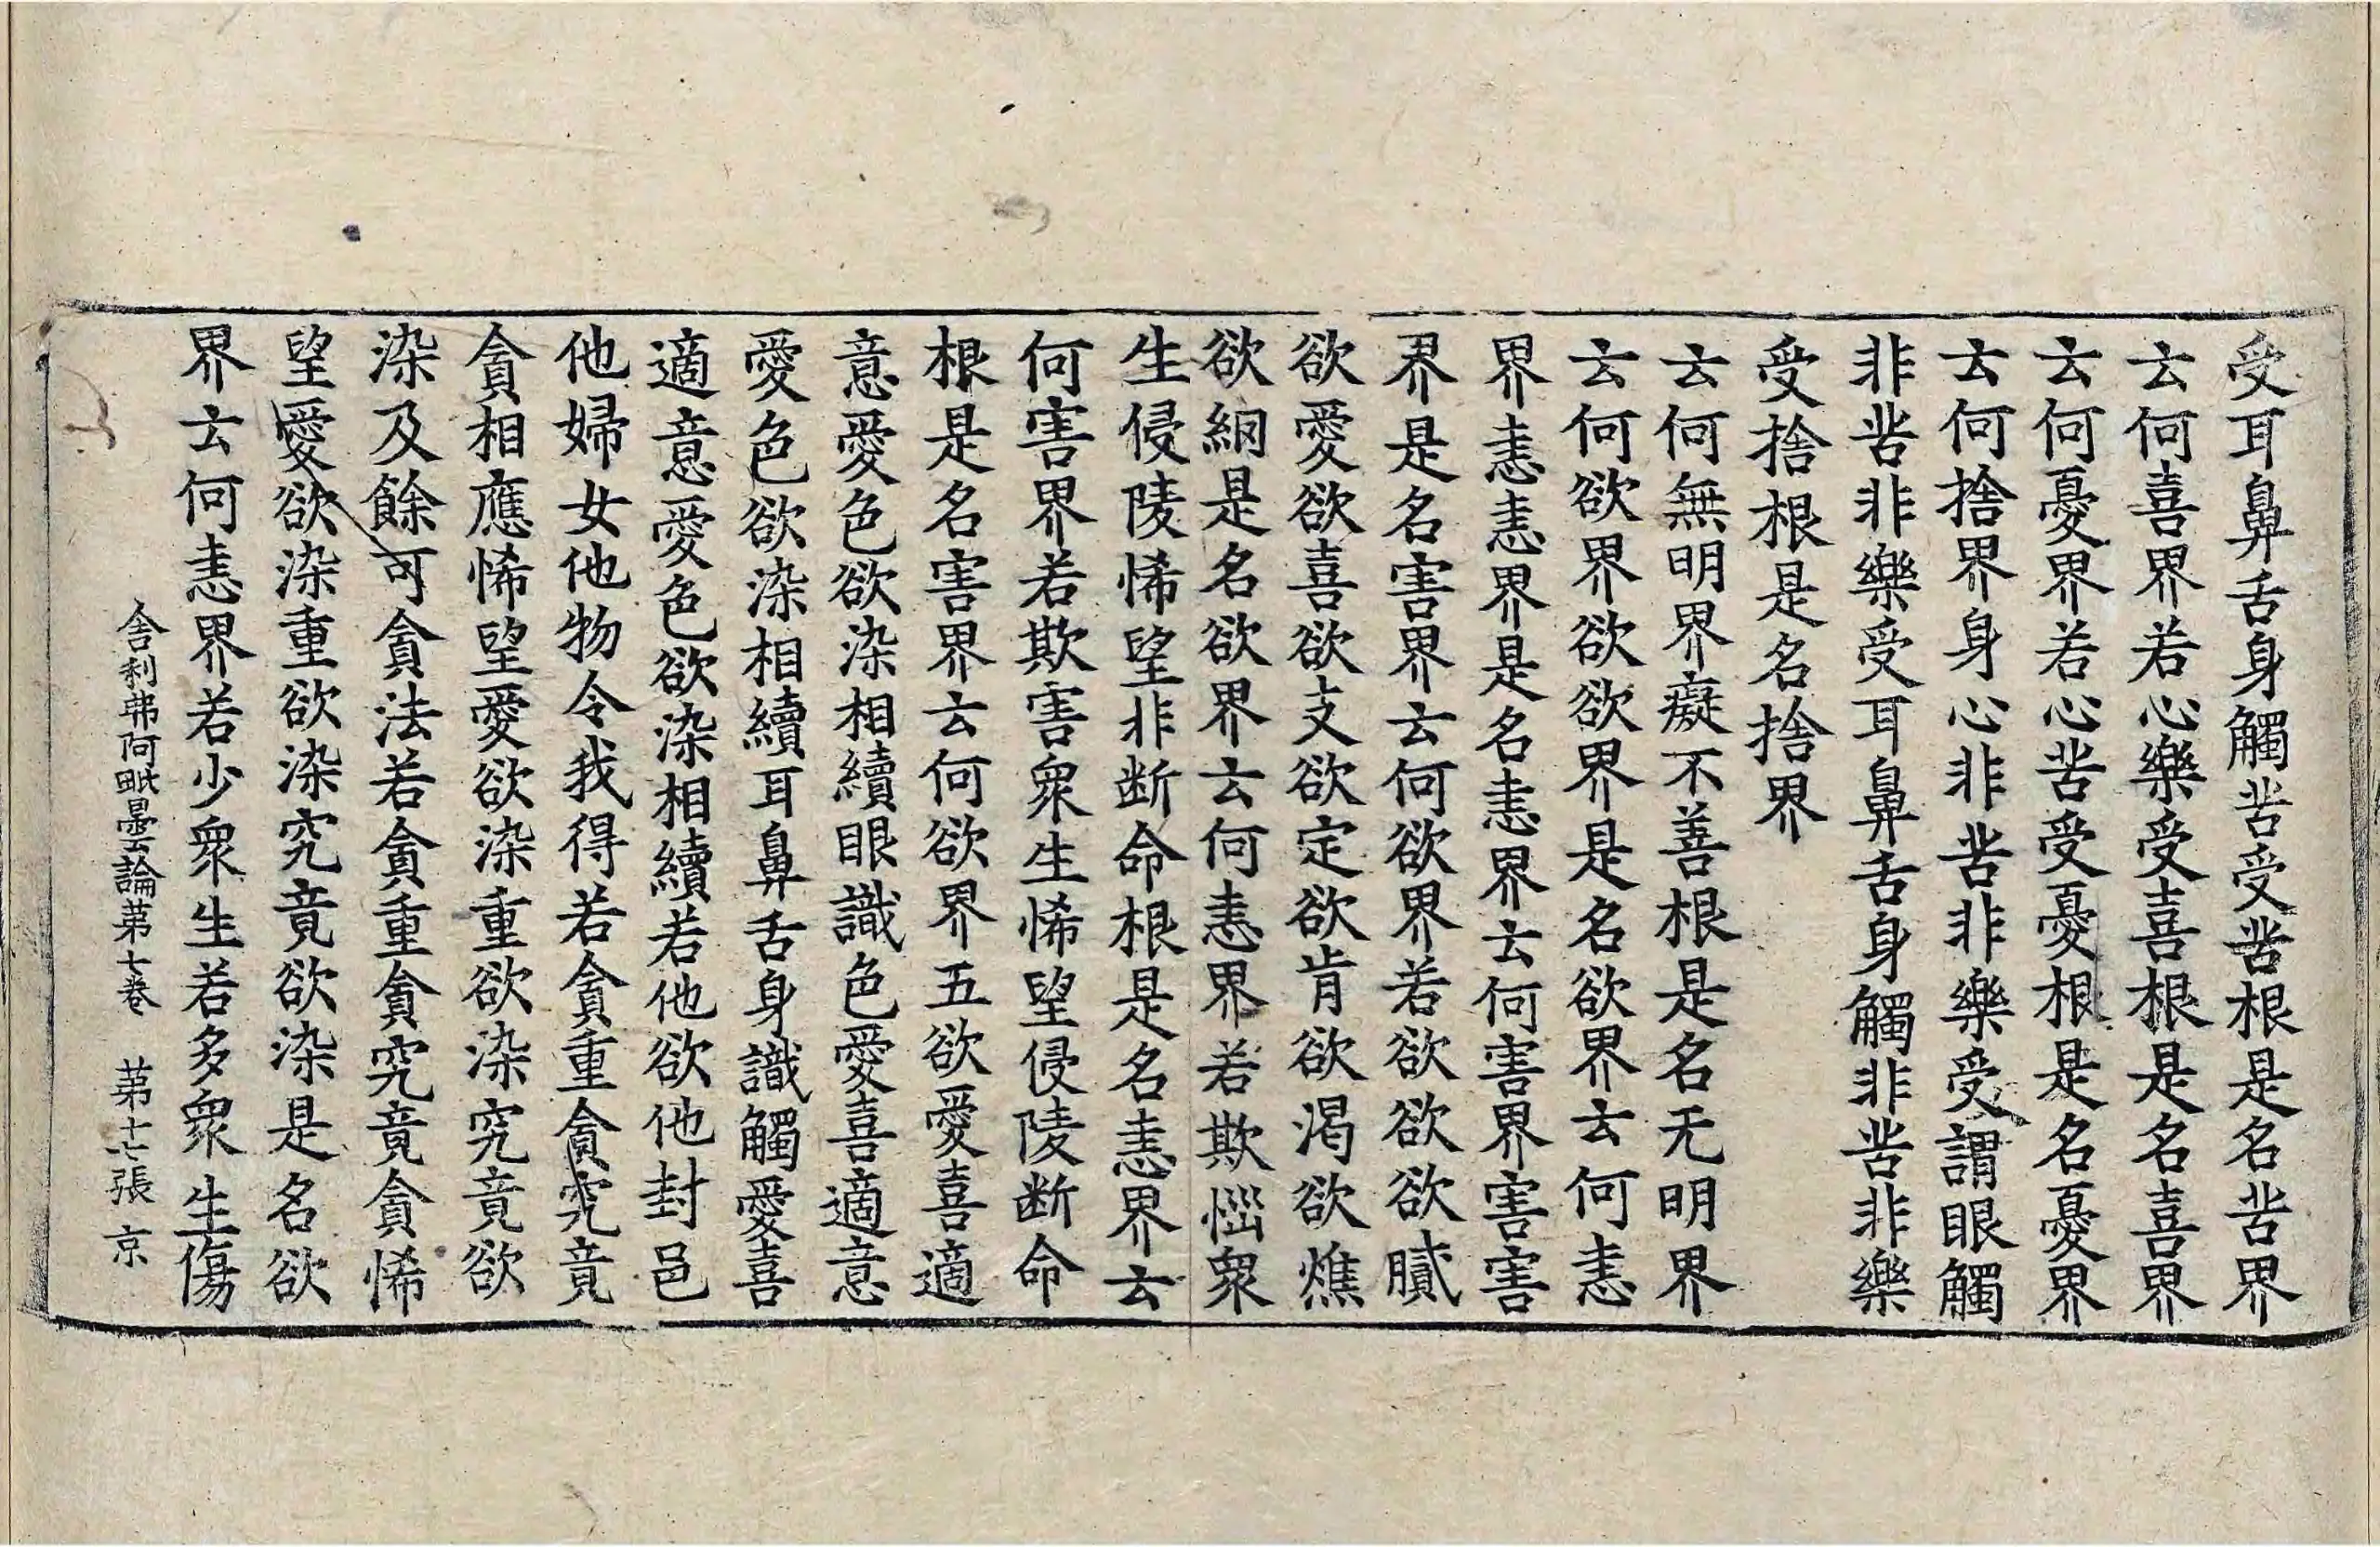 受耳鼻舌身觸苦受苦根是名苦界
云何喜界若心樂受喜根是名喜界
云何憂界若心苦受憂根是名憂界
云何捨界身心非苦非樂受謂眼觸
非苦非樂受耳鼻舌身觸非苦非樂
受捨根是名捨界
云何無明界癡不善根是名无明界
云何欲界欲欲界是名欲界云何恚
界恚恚界是名恚界云何害界害害
界是名害界云何欲界若欲欲欲膩
欲愛欲喜欲支欲定欲肯欲渴欲燋
欲網是名欲界云何恚界若欺惱衆
生侵陵悕望非断命根是名恚界云
何害界若欺害衆生悕望侵陵断命
根是名害界云何欲界五欲愛喜適
意愛色欲染相續眼識色愛喜適意
愛色欲染相續耳鼻舌身識觸愛喜
適意愛色欲染相續若他欲他封邑
他婦女他物令我得若貪重貪究竟
貪相應悕望愛欲染重欲染究竟欲
染及餘可貪法若貪重貪究竟貪悕
望愛欲染重欲染究竟欲染是名欲
界云何恚界若少衆生若多衆生傷
舍利弗阿毗曇論第七卷 第十七張 京